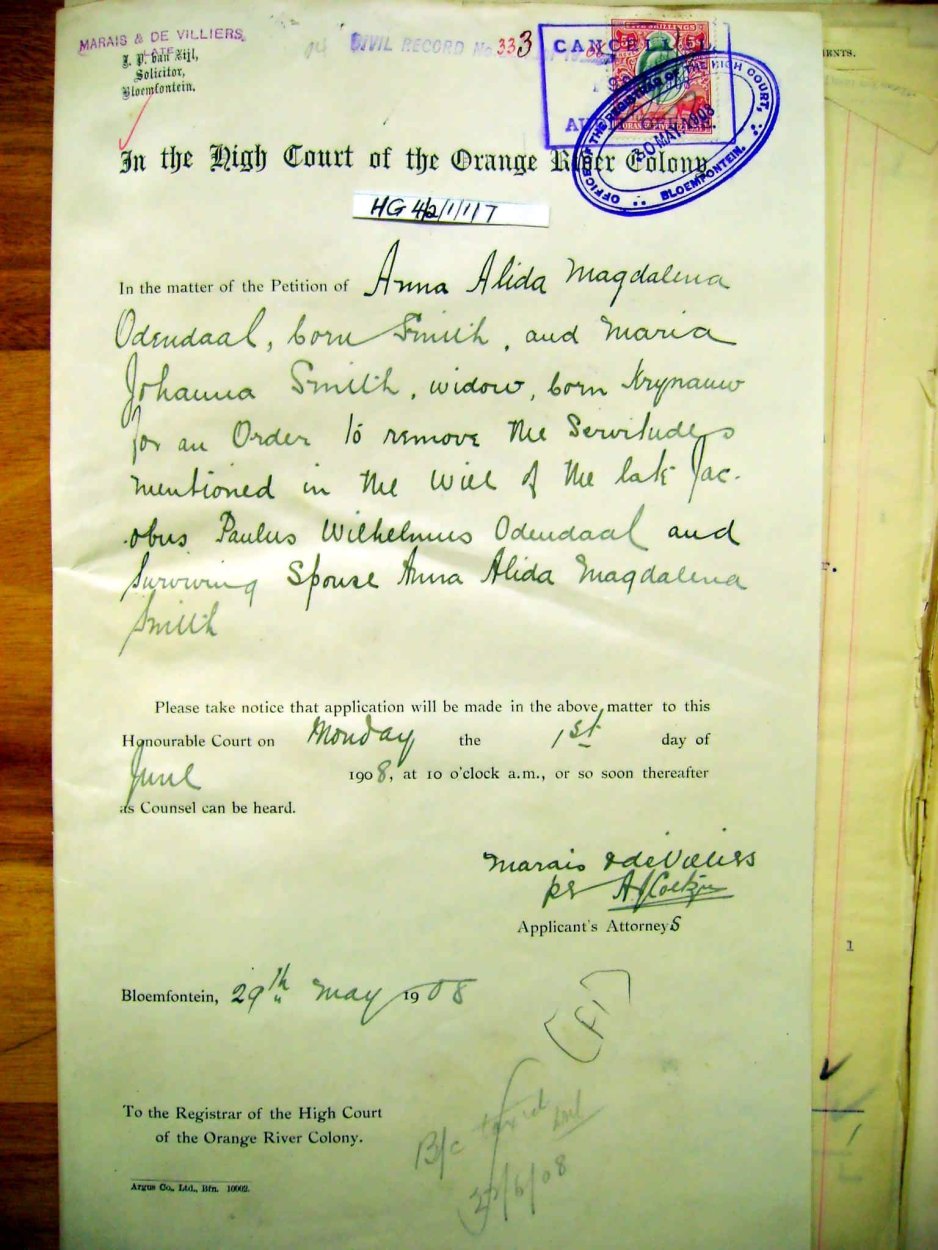 MARAIS & DE VILLIERS,
LATE
J. P. van Zijl,
Solicitor,
Bloemfontein.
CIVIL RECORD No. 333
CANCELLED
FIVE SHILLINGS
5s 5s
OFFICE OF THE REGISTRAR OF THE HIGH COURT,
30 MAY 1908
BLOEMFONTEIN.
In the High Court of the Orange River Colony.
HG 4/2/1/1/7
In the matter of the Petition of Anna Alida Magdalena
Odendaal, born Smith, and Maria
Johanna Smith, widow, born Krynauw
for an Order to remove the Servitudes
mentioned in the Will of the late Jac-
obus Paulus Wilhelmus Odendaal and
Surviving Spouse Anna Alida Magdalena
Smith
Please take notice that application will be made in the above matter to this
Honourable Court on Monday the 1st day of
June 1908, at 10 o'clock a.m., or so soon thereafter
as Counsel can be heard.
Marais & de Villiers
per A J Coetzee
Applicant's Attorneys
Bloemfontein, 29th May 1908
To the Registrar of the High Court
of the Orange River Colony.
B/c taxed
/6/08
Argus Co., Ltd., Bfn. 10002.
ENTS.
r.
1